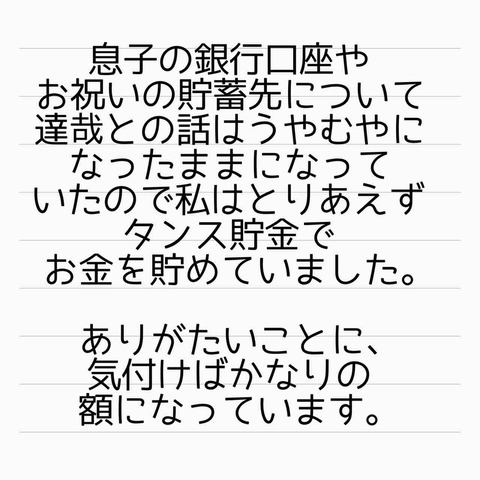 息子の銀行口座や
お祝いの貯蓄先について
達哉との話はうやむやに
なったままになって
いたので私はとりあえず
タンス貯金で
お金を貯めていました。
ありがたいことに、
気付けばかなりの
額になっています。